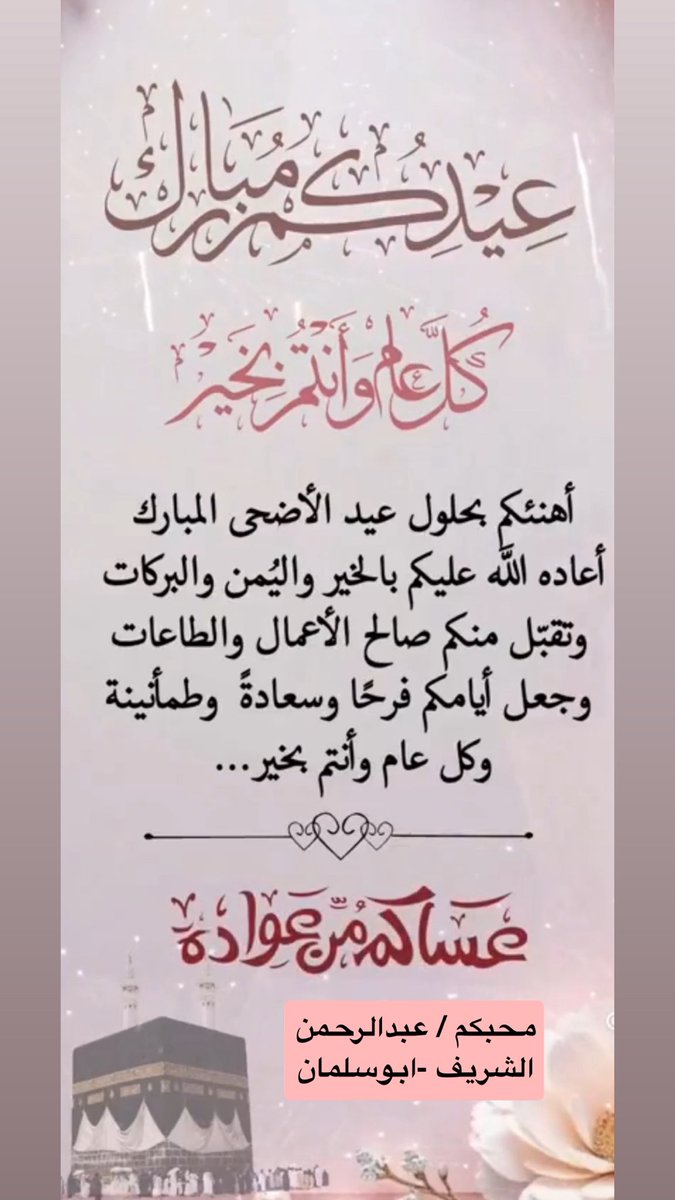 عِيْدِكُم مُبَارك
كُلَّ عام وَأَنتُم بِخَيْر
أهنئكم بحلول عيد الأضحى المبارك
أعاده اللَّه عليكم بالخير واليُمن والبركات
وتقبّل منكم صالح الأعمال والطاعات
وجعل أيامكم فرحًا وسعادةً وطمأنينة
وكل عام وأنتم بخير...
عَساكم مّن عَوادَه
محبكم / عبدالرحمن
الشريف -ابوسلمان